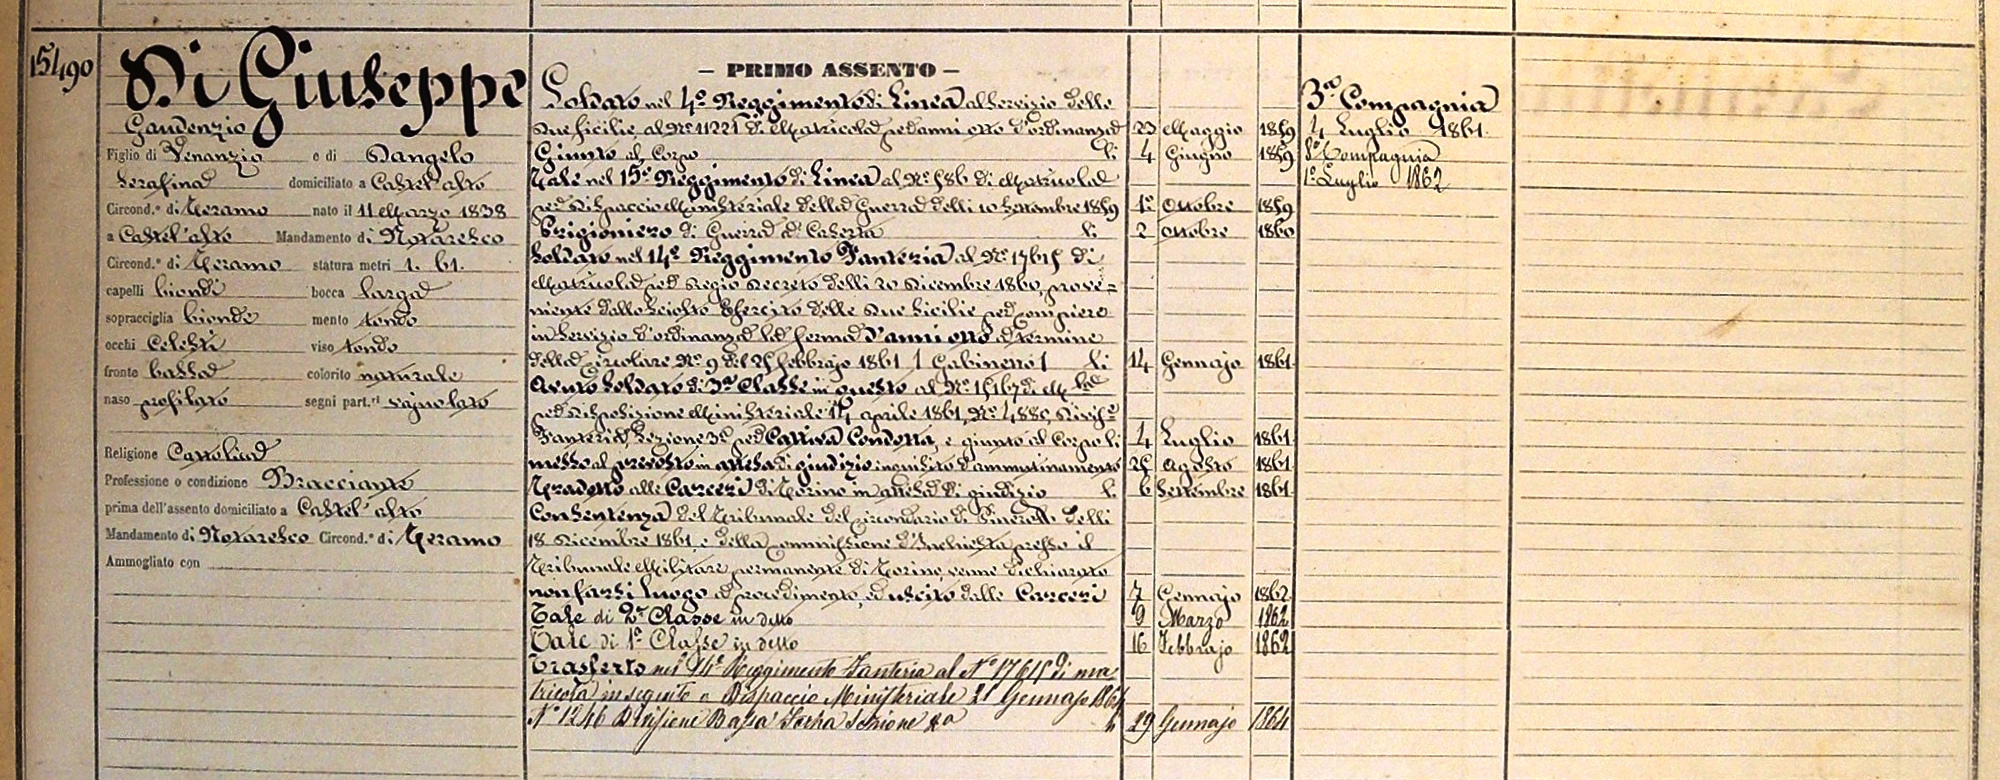 15490
Di Giuseppe
Gaudenzio
Figlio di Venanzio e di Dangelo
Serafina domiciliato a Castel'alto
Circond.º di Teramo nato il 11 Marzo 1838
a Castel'alto Mandamento di Notaresco
Circond.º di Teramo statura metri 1. 61.
capelli biondi bocca larga
sopracciglia bionde mento tondo
occhi celesti viso tondo
fronte bassa colorito naturale
naso profilato segni part.ri vajuolato
Religione Cattolica
Professione o condizione Bracciante
prima dell'assento domiciliato a Castel'alto
Mandamento di Notaresco Circond.º di Teramo
Ammogliato con
— PRIMO ASSENTO —
Soldato nel 4º Reggimento di Linea al servizio delle
Due Sicilie, al Nº 11221 di Matricola per anni otto d'ordinanza 23 Maggio 1859
Giunto al Corpo li 4 Giugno 1859
Tale nel 15º Reggimento di Linea al Nº 586 di Matricola
per Dispaccio Ministeriale della Guerra delli 10 Settembre 1859 1º Ottobre 1859
Prigioniero di Guerra a Caserta li 2 Ottobre 1860
Soldato nel 14º Reggimento Fanteria al Nº 17615 di
Matricola per Regio Decreto delli 20 Dicembre 1860, prove=
niente dallo sciolto Esercito delle Due Sicilie per compiere
in servizio d'ordinanza la ferma d'anni otto a termine
della Circolare Nº 9 del 25 febbrajo 1861 (Gabinetto) li 14 Gennajo 1861
Avuto Soldato di 3ª Classe in questo al Nº 15167 di M.la
per Disposizione Ministeriale 14 aprile 1861, Nº 4885, Divis.e
Fanteria, Sezione 3ª per Cattiva Condotta, e giunto al Corpo li 4 Luglio 1861
messo al prevosto in attesa di giudizio inquisito d'ammutinamento 25 Agosto 1861
Tradotto alle Carceri di Torino in attesa di giudizio li 6 Settembre 1861
Con sentenza del Tribunale del Circondario di Pinerolo delli
18 Dicembre 1861, e della Commissione d'Inchiesta presso il
Tribunale Militare permanente di Torino, venne dichiarato
non farsi luogo a procedimento, ed uscito dalle Carceri 7 Gennajo 1862
Tale di 2ª Classe in detto 9 Marzo 1862
Tale di 1ª Classe in detto 16 Febbrajo 1862
Trasferto nel 14º Reggimento Fanteria al Nº 17615 di ma
tricola in seguito a Dispaccio Ministeriale 21 Gennajo 1864
Nº 1246 Divisione Bassa Forza Sezione 2ª li 29 Gennajo 1864
3ª Compagnia
4 Luglio 1861.
8ª Compagnia
1º Luglio 1862